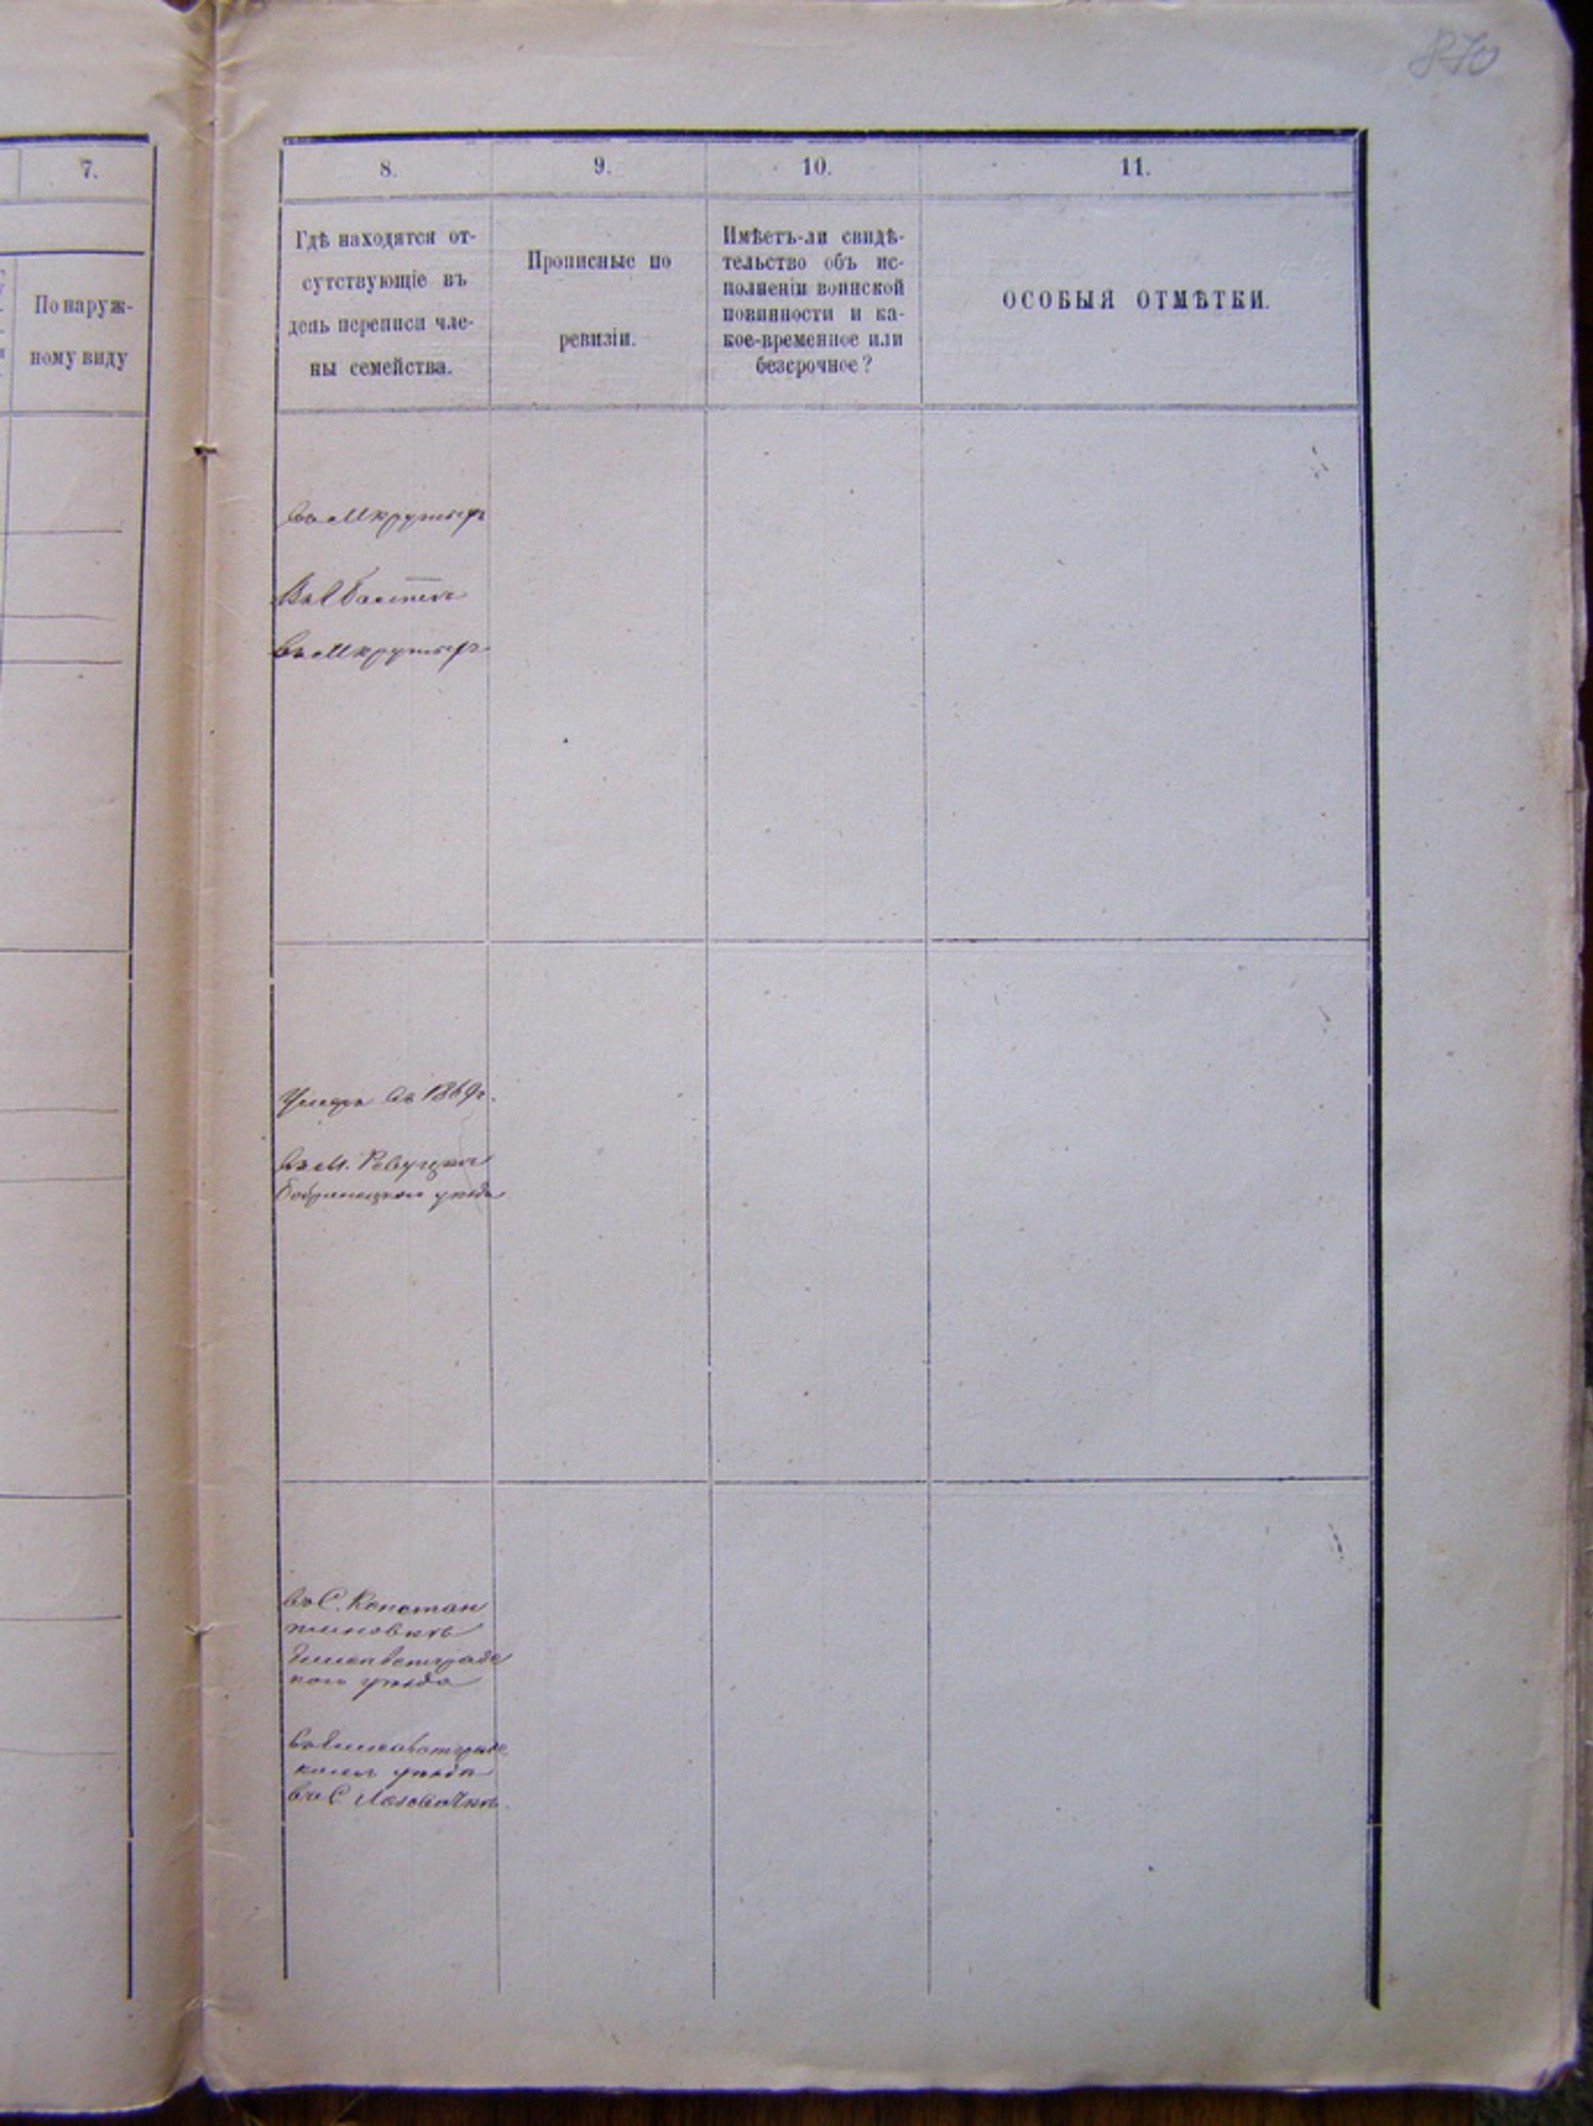 870
7.
8.
9.
10.
11.
По наруж-
ному виду
Гдѣ находятся от-
сутствующіе въ
день переписи чле-
ны семейства.
Прописные по
ревизіи.
Имѣетъ-ли свидѣ-
тельство объ ис-
полненіи воинской
повинности и ка-
кое-временное или
безсрочное?
ОСОБЫЯ ОТМѢТКИ.
Умеръ въ 1869г.
въ М. Ревуцком
Бобринецкого уѣзда
въ С. Констан
тиновкѣ
Елисаветградс
кого уѣзда
въ Елисаветградс
комъ уѣздѣ
въ С Лозоваткѣ